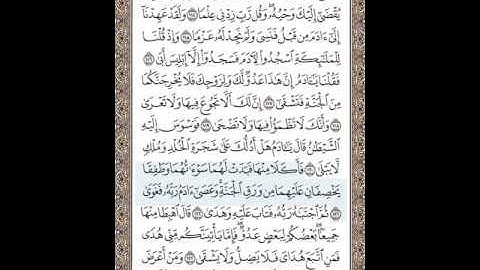 يُقْضَىٰٓ إِلَيْكَ وَحْيُهُۥ ۖ وَقُل رَّبِّ زِدْنِى عِلْمًا ١١٤ وَلَقَدْ عَهِدْنَآ
إِلَىٰٓ ءَادَمَ مِن قَبْلُ فَنَسِىَ وَلَمْ نَجِدْ لَهُۥ عَزْمًا ١١٥ وَإِذْ قُلْنَا
لِلْمَلَٰٓئِكَةِ ٱسْجُدُوا۟ لِـَٔادَمَ فَسَجَدُوٓا۟ إِلَّآ إِبْلِيسَ أَبَىٰ ١١٦
فَقُلْنَا يَٰٓـَٔادَمُ إِنَّ هَٰذَا عَدُوٌّ لَّكَ وَلِزَوْجِكَ فَلَا يُخْرِجَنَّكُمَا
مِنَ ٱلْجَنَّةِ فَتَشْقَىٰٓ ١١٧ إِنَّ لَكَ أَلَّا تَجُوعَ فِيهَا وَلَا تَعْرَىٰ
١١٨ وَأَنَّكَ لَا تَظْمَؤُا۟ فِيهَا وَلَا تَضْحَىٰ ١١٩ فَوَسْوَسَ إِلَيْهِ
ٱلشَّيْطَٰنُ قَالَ يَٰٓـَٔادَمُ هَلْ أَدُلُّكَ عَلَىٰ شَجَرَةِ ٱلْخُلْدِ وَمُلْكٍ
لَّا يَبْلَىٰ ١٢٠ فَأَكَلَا مِنْهَا فَبَدَتْ لَهُمَا سَوْءَٰتُهُمَا وَطَفِقَا
يَخْصِفَانِ عَلَيْهِمَا مِن وَرَقِ ٱلْجَنَّةِ ۚ وَعَصَىٰٓ ءَادَمُ رَبَّهُۥ فَغَوَىٰ
١٢١ ثُمَّ ٱجْتَبَٰهُ رَبُّهُۥ فَتَابَ عَلَيْهِ وَهَدَىٰ ١٢٢ قَالَ ٱهْبِطَا مِنْهَا
جَمِيعًۢا ۖ بَعْضُكُمْ لِبَعْضٍ عَدُوٌّ ۖ فَإِمَّا يَأْتِيَنَّكُم مِّنِّى هُدًى
فَمَنِ ٱتَّبَعَ هُدَاىَ فَلَا يَضِلُّ وَلَا يَشْقَىٰ ١٢٣ وَمَنْ أَعْرَضَ